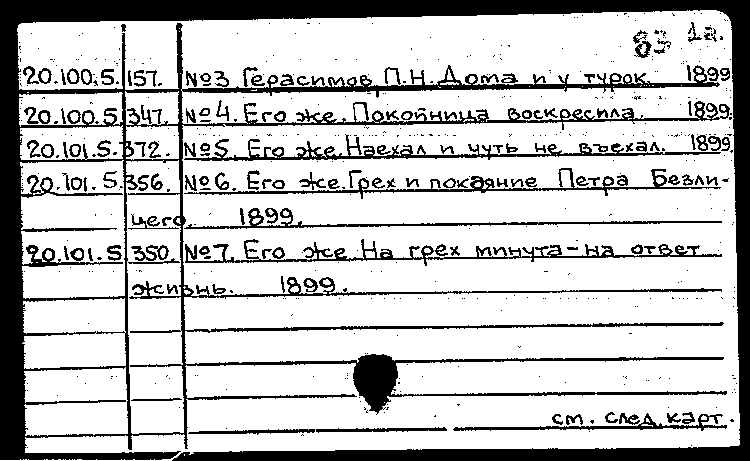 83 1а.
20.100.5. 157. №3 Герасимов, П.Н. Дома и у турок. 1899
20.100.5 347. №4. Его же. Покойница воскресила. 1899.
20.101.5. 372. №5. Его же. Наехал и чуть не въехал. 1899
20.101.5. 356. №6. Его же. Грех и покаяние Петра Безли-
цего. 1899.
20.101.5 350. №7. Его же На грех минута - на ответ
жизнь. 1899.
см. след. карт.